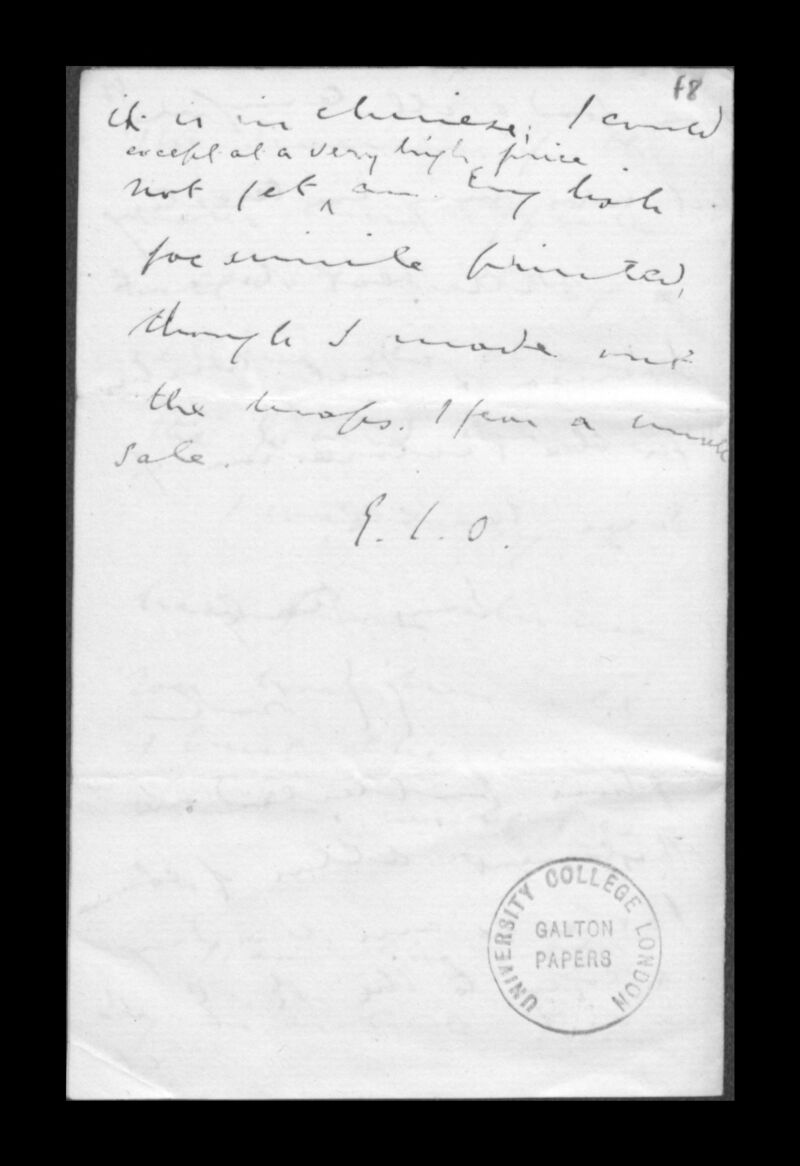 f8
it is in Chinese; I could
except at a very high price
not get ^ an English
facsimile printed,
though I made out
the . I fear a small
sale.
E. I. O.
UNIVERSITY COLLEGE LONDON
GALTON
PAPERS